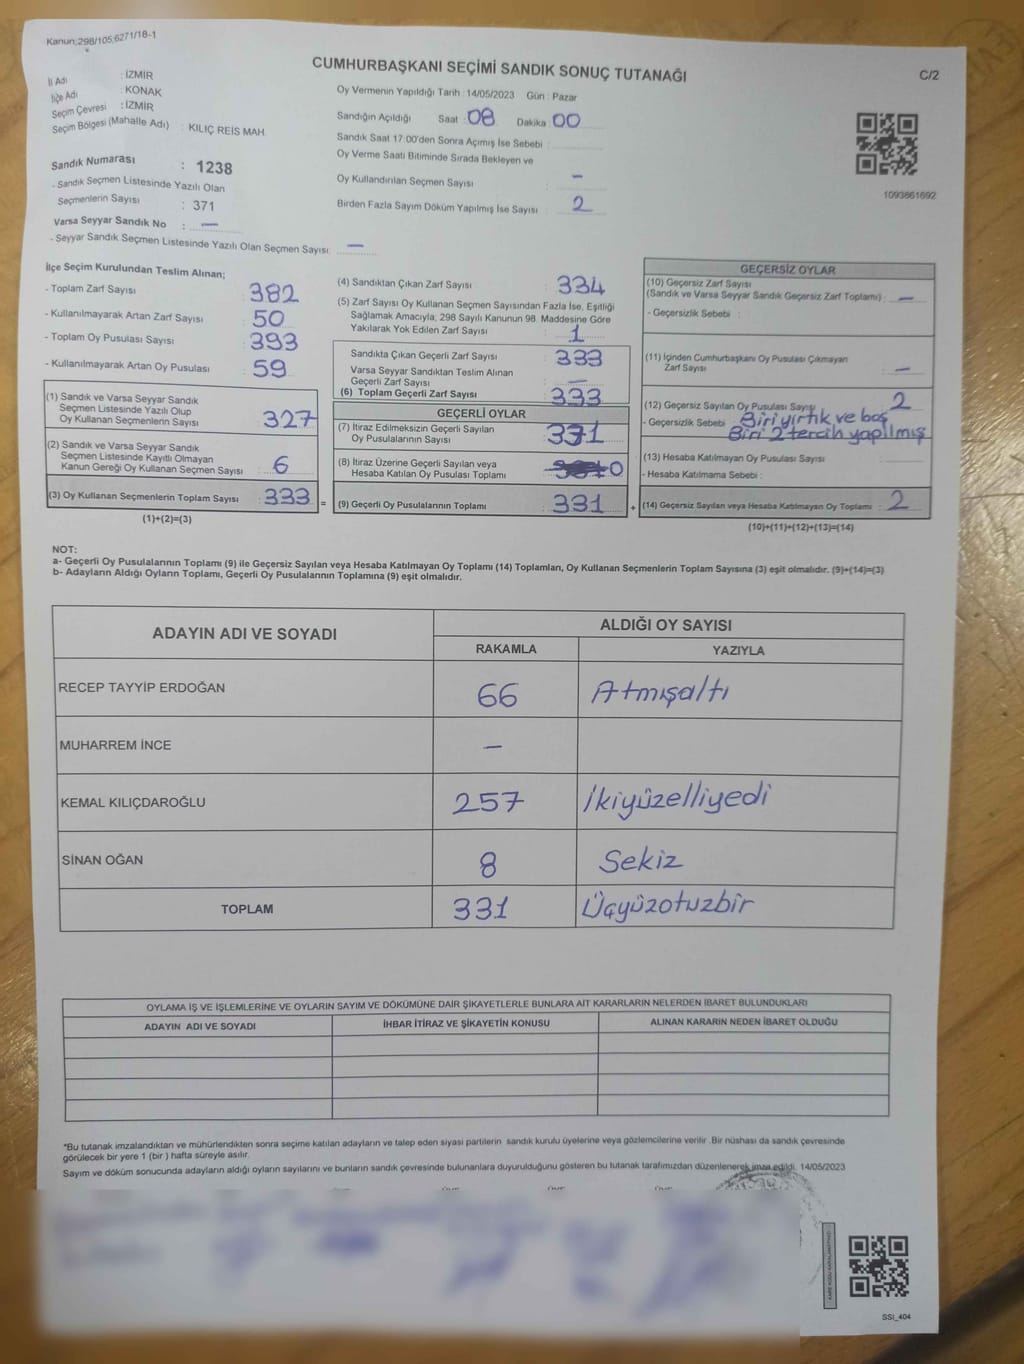 Kanun:298/105,6271/18-1
CUMHURBAŞKANI SEÇİMİ SANDIK SONUÇ TUTANAĞI
C/2
İl Adı : İZMİR
İlçe Adı : KONAK
Seçim Çevresi : İZMİR
Seçim Bölgesi (Mahalle Adı) : KILIÇ REİS MAH.
Sandık Numarası : 1238
- Sandık Seçmen Listesinde Yazılı Olan
Seçmenlerin Sayısı : 371
Varsa Seyyar Sandık No : —
- Seyyar Sandık Seçmen Listesinde Yazılı Olan Seçmen Sayısı: —
Oy Vermenin Yapıldığı Tarih : 14/05/2023 Gün : Pazar
Sandığın Açıldığı Saat : 08 Dakika : 00
Sandık Saat 17:00'den Sonra Açımış İse Sebebi :
Oy Verme Saati Bitiminde Sırada Bekleyen ve
Oy Kullandırılan Seçmen Sayısı : —
Birden Fazla Sayım Döküm Yapılmış İse Sayısı : 2
1093861692
İlçe Seçim Kurulundan Teslim Alınan;
- Toplam Zarf Sayısı : 382
- Kullanılmayarak Artan Zarf Sayısı : 50
- Toplam Oy Pusulası Sayısı : 393
- Kullanılmayarak Artan Oy Pusulası : 59
(1) Sandık ve Varsa Seyyar Sandık
Seçmen Listesinde Yazılı Olup
Oy Kullanan Seçmenlerin Sayısı : 327
(2) Sandık ve Varsa Seyyar Sandık
Seçmen Listesinde Kayıtlı Olmayan
Kanun Gereği Oy Kullanan Seçmen Sayısı : 6
(3) Oy Kullanan Seçmenlerin Toplam Sayısı : 333 =
(1)+(2)=(3)
(4) Sandıktan Çıkan Zarf Sayısı : 334
(5) Zarf Sayısı Oy Kullanan Seçmen Sayısından Fazla İse, Eşitliği
Sağlamak Amacıyla, 298 Sayılı Kanunun 98. Maddesine Göre
Yakılarak Yok Edilen Zarf Sayısı : 1
Sandıkta Çıkan Geçerli Zarf Sayısı : 333
Varsa Seyyar Sandıktan Teslim Alınan
Geçerli Zarf Sayısı : —
(6) Toplam Geçerli Zarf Sayısı : 333
GEÇERLİ OYLAR
(7) İtiraz Edilmeksizin Geçerli Sayılan
Oy Pusulasının Sayısı : 331
(8) İtiraz Üzerine Geçerli Sayılan veya
Hesaba Katılan Oy Pusulası Toplamı : 0
(9) Geçerli Oy Pusulalarının Toplamı : 331 +
GEÇERSİZ OYLAR
(10) Geçersiz Zarf Sayısı
(Sandık ve Varsa Seyyar Sandık Geçersiz Zarf Toplamı) : —
- Geçersizlik Sebebi :
(11) İçinden Cumhurbaşkanı Oy Pusulası Çıkmayan
Zarf Sayısı : —
(12) Geçersiz Sayılan Oy Pusulası Sayısı : 2
- Geçersizlik Sebebi : Biri yırtık ve boş
Biri 2 tercih yapılmış
(13) Hesaba Katılmayan Oy Pusulası Sayısı :
- Hesaba Katılmama Sebebi :
(14) Geçersiz Sayılan veya Hesaba Katılmayan Oy Toplamı : 2
(10)+(11)+(12)+(13)=(14)
NOT:
a- Geçerli Oy Pusulalarının Toplamı (9) ile Geçersiz Sayılan veya Hesaba Katılmayan Oy Toplamı (14) Toplamları, Oy Kullanan Seçmenlerin Toplam Sayısına (3) eşit olmalıdır. (9)+(14)=(3)
b- Adayların Aldığı Oyların Toplamı, Geçerli Oy Pusulalarının Toplamına (9) eşit olmalıdır.
ADAYIN ADI VE SOYADI
ALDIĞI OY SAYISI
RAKAMLA YAZIYLA
RECEP TAYYİP ERDOĞAN 66 Atmışaltı
MUHARREM İNCE —
KEMAL KILIÇDAROĞLU 257 İkiyüzelliyedi
SİNAN OĞAN 8 Sekiz
TOPLAM 331 Üçyüzotuzbir
OYLAMA İŞ VE İŞLEMLERİNE VE OYLARIN SAYIM VE DÖKÜMÜNE DAİR ŞİKAYETLERLE BUNLARA AİT KARARLARIN NELERDEN İBARET BULUNDUKLARI
ADAYIN ADI VE SOYADI İHBAR İTİRAZ VE ŞİKAYETİN KONUSU ALINAN KARARIN NEDEN İBARET OLDUĞU
*Bu tutanak imzalandıktan ve mühürlendikten sonra seçime katılan adayların ve talep eden siyasi partilerin sandık kurulu üyelerine veya gözlemcilerine verilir. Bir nüshası da sandık çevresinde
görülecek bir yere 1 (bir ) hafta süreyle asılır.
Sayım ve döküm sonucunda adayların aldığı oyların sayılarını ve bunların sandık çevresinde bulunanlara duyurulduğunu gösteren bu tutanak tarafımızdan düzenlenerek imza edildi. 14/05/2023
SSI_404